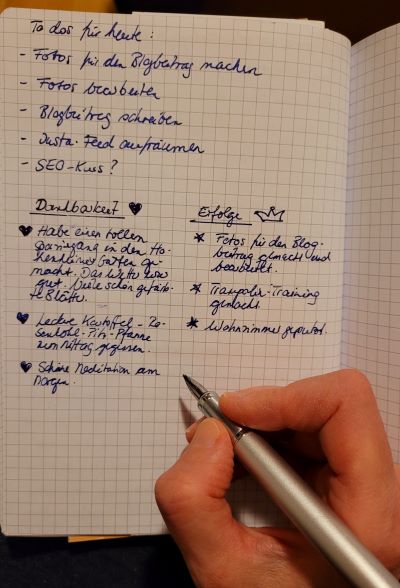 To dos für heute:
- Fotos für den Blogbeitrag machen
- Fotos bearbeiten
- Blogbeitrag schreiben
- Insta-Feed aufräumen
- SEO-Kurs?
Dankbarkeit
Habe einen tollen
Spaziergang in den Ho-
henheimer Gärten ge-
macht. Das Wetter war
gut. Viele schön gefärb-
te Blätter.
Leckere Kartoffel-Ro-
senkohl-Pilz-Pfanne
zum Mittag gegessen.
Schöne Meditation am
Morgen.
Erfolge
Fotos für den Blog-
beitrag gemacht und
bearbeitet.
Trampolin-Training
gemacht.
Wohnzimmer geputzt.